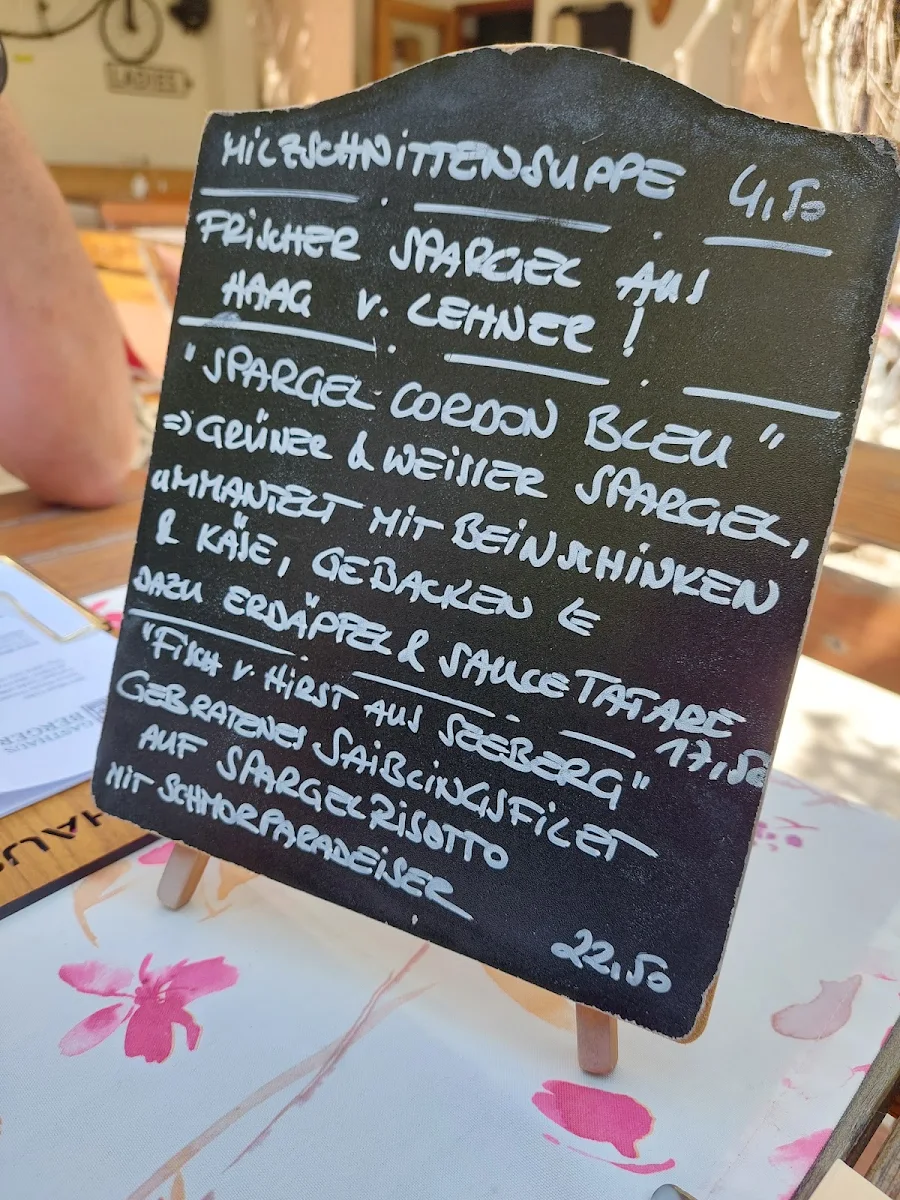 LADIES
MILZSCHNITTENSUPPE 4,50
FRISCHER SPARGEL AUS
HAAG v. LEHNER!
"SPARGEL CORDON BLEU"
=> GRÜNER & WEISSER SPARGEL,
UMMANTELT MIT BEINSCHINKEN
& KÄSE, GEBACKEN <=
DAZU ERDÄPFEL & SAUCE TATARE
17,50
"FISCH v. HIRST AUS SEEBERG"
GEBRATENES SAIBLINGSFILET
AUF SPARGELRISOTTO
MIT SCHMORPARADEISER
22,50
GASTHAUS
BERGER
HAUS